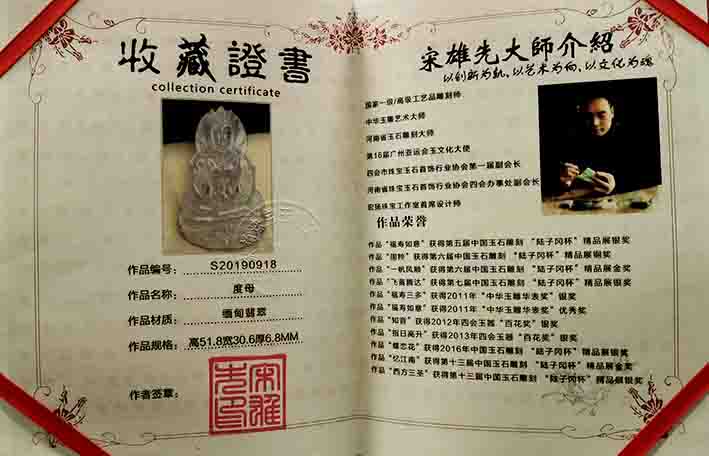 收藏證書
collection certificate
作品编号： S20190918
作品名称： 度母
作品材质： 缅甸翡翠
作品规格： 高51.8宽30.6厚6.8MM
作者签章：
宋雄先印
宋雄先大師介紹
以创新为轨、以艺术为向、以文化为魂
国家一级/高级工艺品雕刻师
中华玉雕艺术大师
河南省玉石雕刻大师
第16届广州亚运会玉文化大使
四会市珠宝玉石首饰行业协会第一届副会长
河南省珠宝玉石首饰行业协会四会办事处副会长
宏铭珠宝工作室首席设计师
作品荣誉
作品“福寿如意”获得第五届中国玉石雕刻 “陆子冈杯”精品展银奖
作品 获得第六届中国玉石雕刻 “陆子冈杯”精品展铜奖
作品“一帆风顺”获得第六届中国玉石雕刻 “陆子冈杯”精品展金奖
作品“飞黄腾达”获得第七届中国玉石雕刻 “陆子冈杯”精品展银奖
作品“福寿三多”获得2011年“中华玉雕华表奖”银奖
作品“福寿如意”获得2011年“中华玉雕华表奖”优秀奖
作品“知音”获得2012年四会玉器“百花奖”银奖
作品“指日高升”获得2013年四会玉器“百花奖”银奖
作品“蝶恋花”获得2016年中国玉石雕刻 “陆子冈杯”精品展银奖
作品“忆江南”获得第十三届中国玉石雕刻 “陆子冈杯”精品展金奖
作品“西方三圣”获得第十三届中国玉石雕刻 “陆子冈杯”精品展银奖